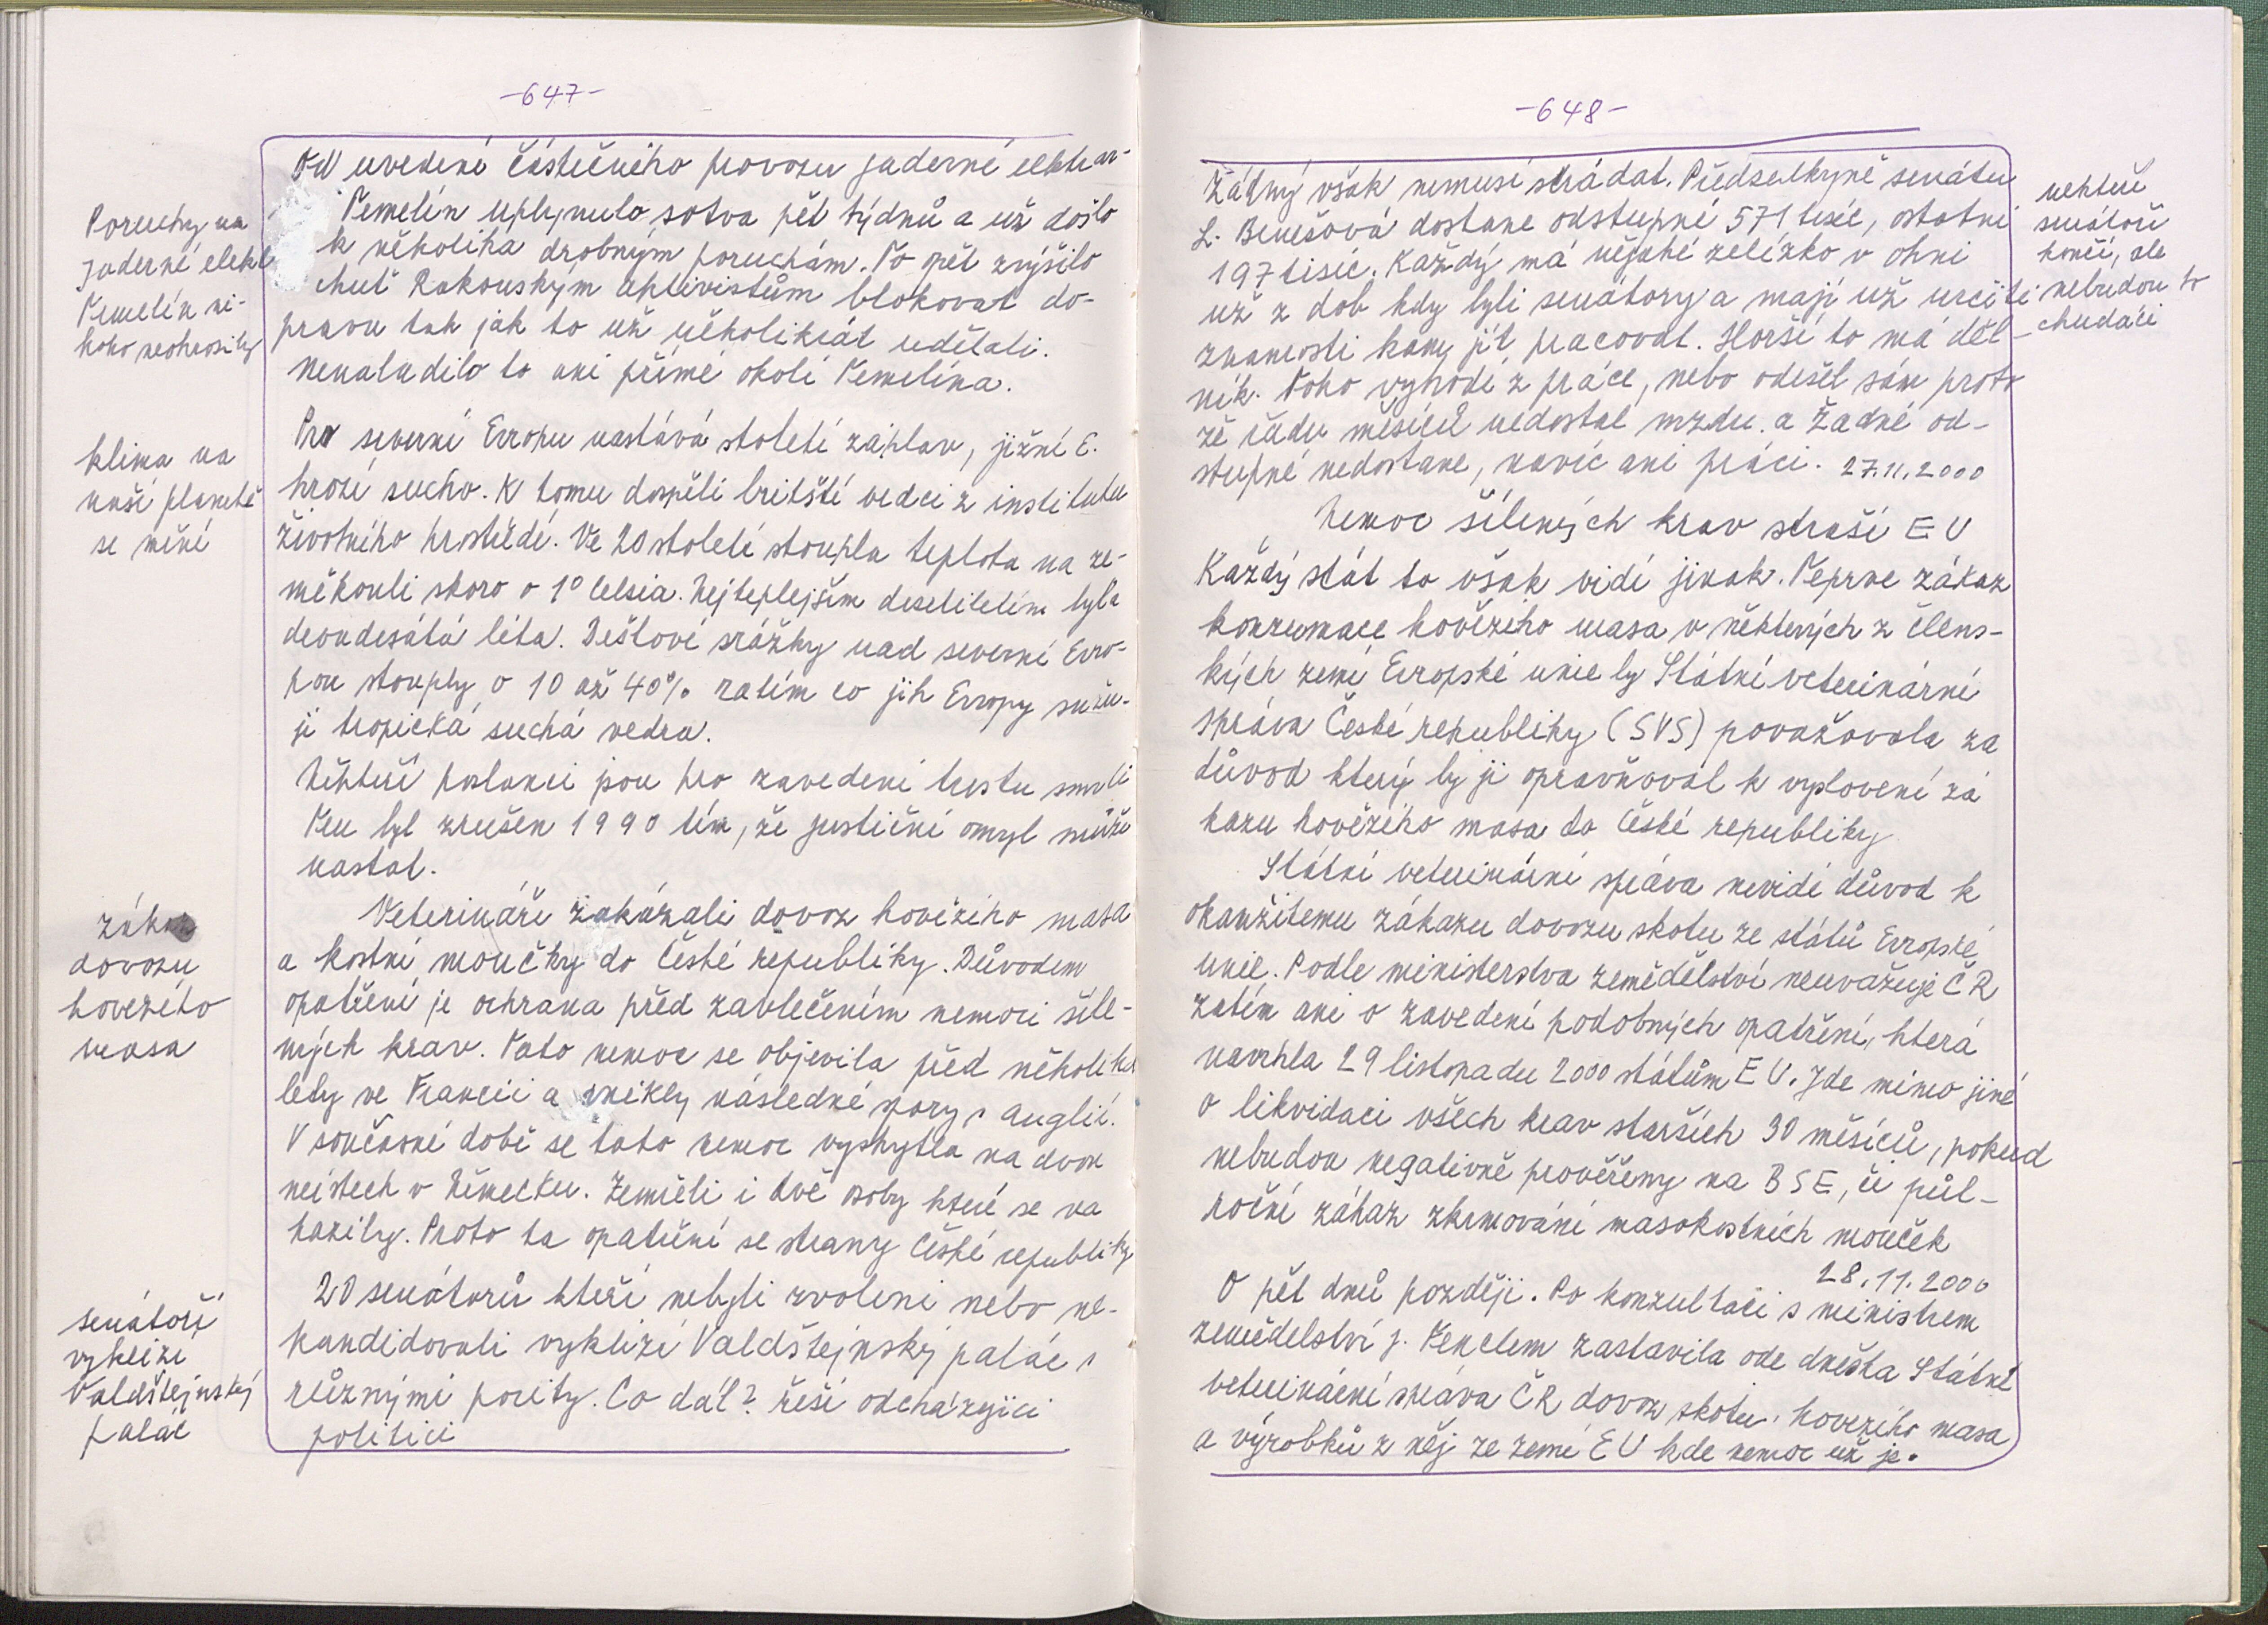 -647-
Od uvedení částečného provozu jaderné elektrár-
Temelín uplynulo sotva pět týdnů a už došlo
k několika drobným poruchám. To opět zvýšilo
chuť Rakouským aktivistům blokovat do-
pravu tak jak to už několikrát udělali.
Nenaladilo to ani přímé okolí Temelína.
Poruchy na
jaderné elekt
Temelín ni-
koho neohrozily
Pro severní Evropu nastává století záplav, jižní E.
hrozí sucho. K tomu dospěli britští vědci z institutu
životního prostředí. Ve 20 století stoupla teplota na ze-
měkouli skoro o 1° Celsia. Nejteplejším desetiletím byla
devadesátá léta. Dešťové srážky nad severní Evro-
pou stouply o 10 až 40% zatím co jih Evropy sužu-
jí tropická suchá vedra.
klima na
naší planetě
se mění
Někteří poslanci jsou pro zavedení trestu smrti
Ten byl zrušen 1990 tím, že justiční omyl může
nastat.
Veterináři zakázali dovoz hovězího masa
a kostní moučky do České republiky. Důvodem
opatření je ochrana před zavlečením nemoci šíle-
ných krav. Tato nemoc se objevila před několika
lety ve Francii a vnikly následné spory s anglií.
V současné době se tato nemoc vyskytla na dvou
místech v Německu. Zemřeli i dvě osoby které se na
kazily. Proto ta opatření se strany České republiky
zákaz
dovozu
hovezího
masa
20 senátorů kteří nebyli zvoleni nebo ne-
kandidovali vyklízí Valdštejnský palác s
různými pocity. Co dál? řeší odcházející
politici
senátoři
vyklízí
Valdštejnský
palác
-648-
Žátný však nemusí strádat. Předsedkyně senátu
L. Benešová dostane odstupné 571 tisíc, ostatní
197 tisíc. Každý má nějaké želízko v ohni
už z dob kdy byli senátory a mají už určitě
známosti kam jít pracovat. Horší to má děl-
ník. Toho vyhodí z práce, nebo odešel sám proto
že řadu měsíců nedostal mzdu. a žadné od-
stupné nedostane, navíc ani práci. 27.11.2000
někteří
senátoři
končí, ale
nebudou to
chudáci
Nemoc šílených krav straší EU
Každý stát to však vidí jinak. Teprve zákaz
konzumace hovězího masa v některých z člens-
kých zemí Evropské unie by Státní veterinární
správa České republiky (SVS) považovala za
důvod který by ji opravňoval k vyslovení zá
kazu hovězího masa do České republiky
Státní veterinární správa nevidí důvod k
okamžitemu zákazu dovozu skotu ze států Evropské
unie. Podle ministerstva zemědělství neuvažuje ČR
zatím ani o zavedení podobných opatření, která
navrhla 29 listopadu 2000 státům EU. Jde mimo jiné
o likvidaci všech krav starších 30 měsíců, pokud
nebudou negativně prověřeny na BSE, či půl-
roční zákaz zkrmování masokostních mouček
28.11.2000
O pět dnů později. Po konzultaci s ministrem
zemědelství J. Fenclem zastavila ode dneška Státní
veterinární správa ČR dovoz skotu, hovezího masa
a výrobků z něj ze zemí EU kde nemoc už je.